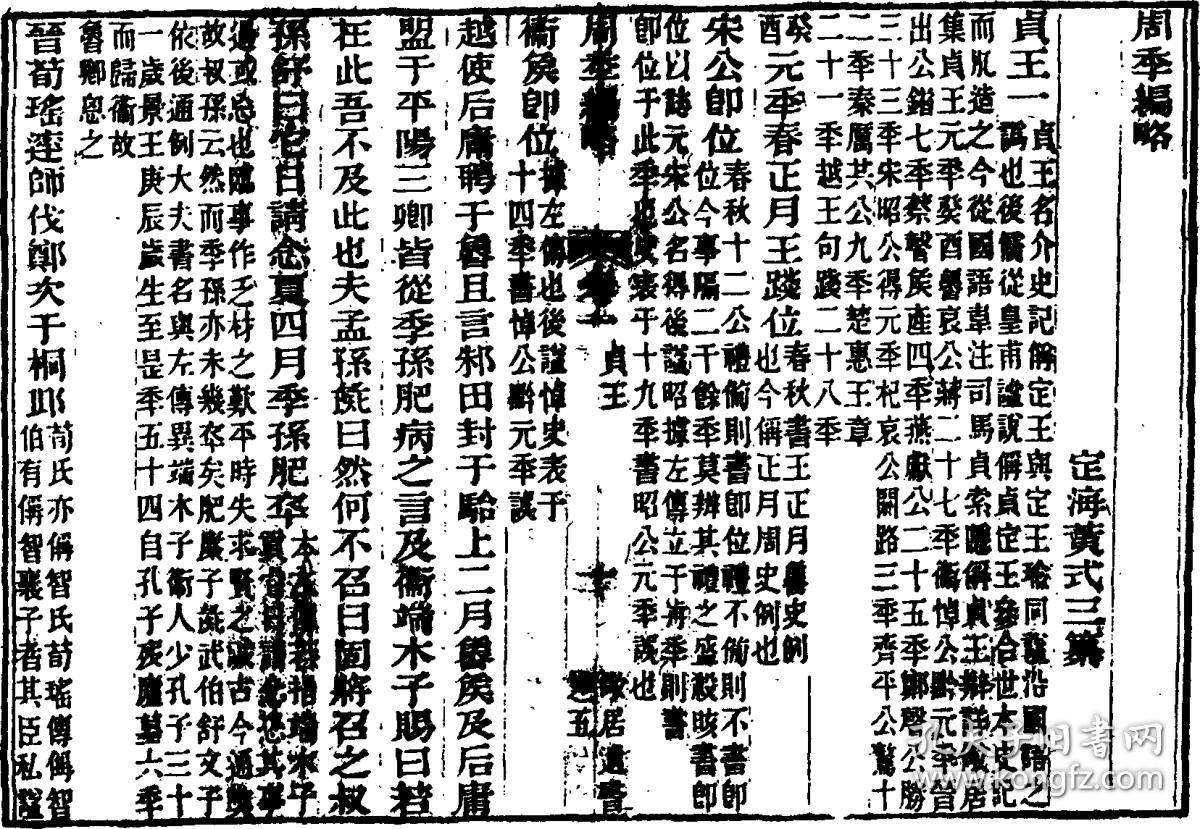 周季編略
定海黃式三篹
貞王一
貞王名介史記偁定王與定王瑜同諡沿國語之
譌也後儒從皇甫謐說偁貞定王參合世本史記
而兩造之今從國語韋注司馬貞索隱偁貞王辨詳儆居
集貞王元秊癸酉魯哀公蔣二十七秊衞悼公黔元秊晉
出公鑿七秊蔡聲矦產四秊燕獻公二十五秊鄭聲公勝
三十三秊宋昭公得元秊杞哀公閼路三秊齊平公驁十
二秊秦厲共公九秊楚惠王章
二十一秊越王句踐二十八秊
癸酉
元秊春正月王踐位
春秋書王正月魯史例
也今偁正月周史例也
宋公卽位
春秋十二公禮備則書卽位禮不備則不書卽
位今事隔二千餘秊莫辨其禮之盛殺晐書卽
位以誌元宋公名得後諡昭據左傳立于歬秊則書
卽位于此秊也史表于十九秊書昭公元秊誤也
周季編略
貞王
一
儆居遺書
之五
衞矦卽位
據左傳也後諡悼史表于
十四秊書悼公黔元秊誤
越使后庸聘于魯且言邾田封于駘上二月魯矦及后庸
盟于平陽三卿皆從季孫肥病之言及衞端木子賜曰若
在此吾不及此也夫孟孫彘曰然何不召曰固將召之叔
孫舒曰它日請念夏四月季孫肥卒
本左傳若指端木子
貢它日請念恐其事
過或忘也臨事作乏材之歎平時失求賢之誠古今通患
故叔孫云然而季孫亦未幾卒矣肥康子彘武伯舒文子
依後通例大夫書名與左傳異端木子衞人少孔子三十
一歲景王庚辰歲生至是秊五十四自孔子歿廬墓六秊
而歸衞故
魯卿思之
晉荀瑤率師伐鄭次于桐丘
荀氏亦偁智氏荀瑤傳偁智
伯有偁智襄子者其臣私諡
孔夫子旧书网
www.kongfz.com